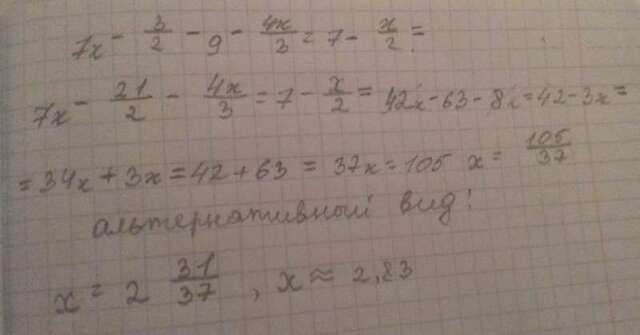 7x - 3/2 - 9 - 4x/3 = 7 - x/2 =
7x - 21/2 - 4x/3 = 7 - x/2 = 42x - 63 - 8x = 42 - 3x =
= 34x + 3x = 42 + 63 = 37x = 105 x = 105/37
альтернативный вид:
x = 2 31/37, x ≈ 2,83